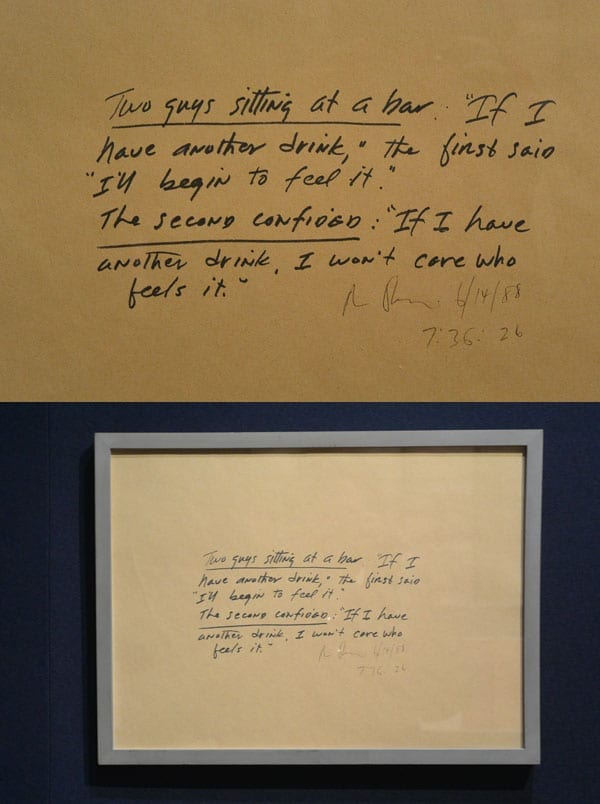 Two guys sitting at a bar : "If I
have another drink," the first said
"I'll begin to feel it."
The second confided : "If I have
another drink, I won't care who
feels it."
6/14/88
7:36:26
Two guys sitting at a bar "If I
have another drink," the first said
"I'll begin to feel it."
The second confided : "If I have
another drink, I won't care who
feels it."
6/14/88
7:36:26